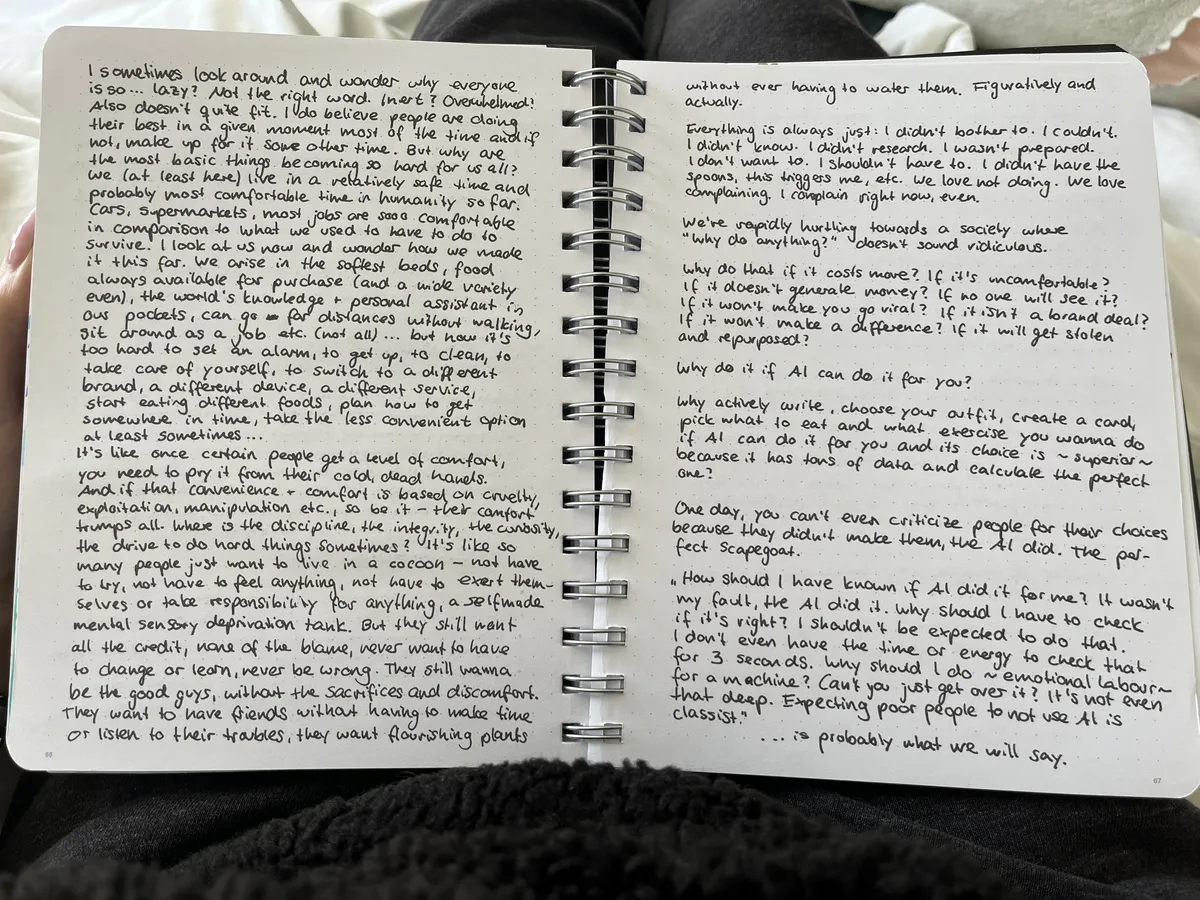 I sometimes look around and wonder why everyone
is so... lazy? Not the right word. Inert? Overwhelmed?
Also doesn't quite fit. I do believe people are doing
their best in a given moment most of the time and if
not, make up for it some other time. But why are
the most basic things becoming so hard for us all?
We (at least here) live in a relatively safe time and
probably most comfortable time in humanity so far.
Cars, supermarkets, most jobs are sooo comfortable
in comparison to what we used to have to do to
survive. I look at us now and wonder how we made
it this far. We arise in the softest beds, food
always available for purchase (and a wide variety
even), the world's knowledge + personal assistant in
our pockets, can go far distances without walking,
sit around as a job etc. (not all)... but now it's
too hard to set an alarm, to get up, to clean, to
take care of yourself, to switch to a different
brand, a different device, a different service,
start eating different foods, plan how to get
somewhere in time, take the less convenient option
at least sometimes...
It's like once certain people get a level of comfort,
you need to pry it from their cold, dead hands.
And if that convenience + comfort is based on cruelty,
exploitation, manipulation etc., so be it - their comfort
trumps all. Where is the discipline, the integrity, the curiosity,
the drive to do hard things sometimes? It's like so
many people just want to live in a cocoon - not have
to try, not have to feel anything, not have to exert them-
selves or take responsibility for anything, a selfmade
mental sensory deprivation tank. But they still want
all the credit, none of the blame, never want to have
to change or learn, never be wrong. They still wanna
be the good guys, without the sacrifices and discomfort.
They want to have friends without having to make time
or listen to their troubles, they want flourishing plants
66
without ever having to water them. Figuratively and
actually.
Everything is always just: I didn't bother to. I couldn't.
I didn't know. I didn't research. I wasn't prepared.
I don't want to. I shouldn't have to. I didn't have the
spoons, this triggers me, etc. We love not doing. We love
complaining. I complain right now, even.
We're rapidly hurtling towards a society where
"Why do anything?" doesn't sound ridiculous.
Why do that if it costs more? If it's uncomfortable?
If it doesn't generate money? If no one will see it?
If it won't make you go viral? If it isn't a brand deal?
If it won't make a difference? If it will get stolen
and repurposed?
Why do it if AI can do it for you?
Why actively write, choose your outfit, create a card,
pick what to eat and what exercise you wanna do
if AI can do it for you and its choice is ~superior~
because it has tons of data and calculate the perfect
one?
One day, you can't even criticize people for their choices
because they didn't make them, the AI did. The per-
fect scapegoat.
„How should I have known if AI did it for me? It wasn't
my fault, the AI did it. Why should I have to check
if it's right? I shouldn't be expected to do that.
I don't even have the time or energy to check that
for 3 seconds. Why should I do ~emotional labour~
for a machine? Can't you just get over it? It's not even
that deep. Expecting poor people to not use AI is
classist."
... is probably what we will say.
67